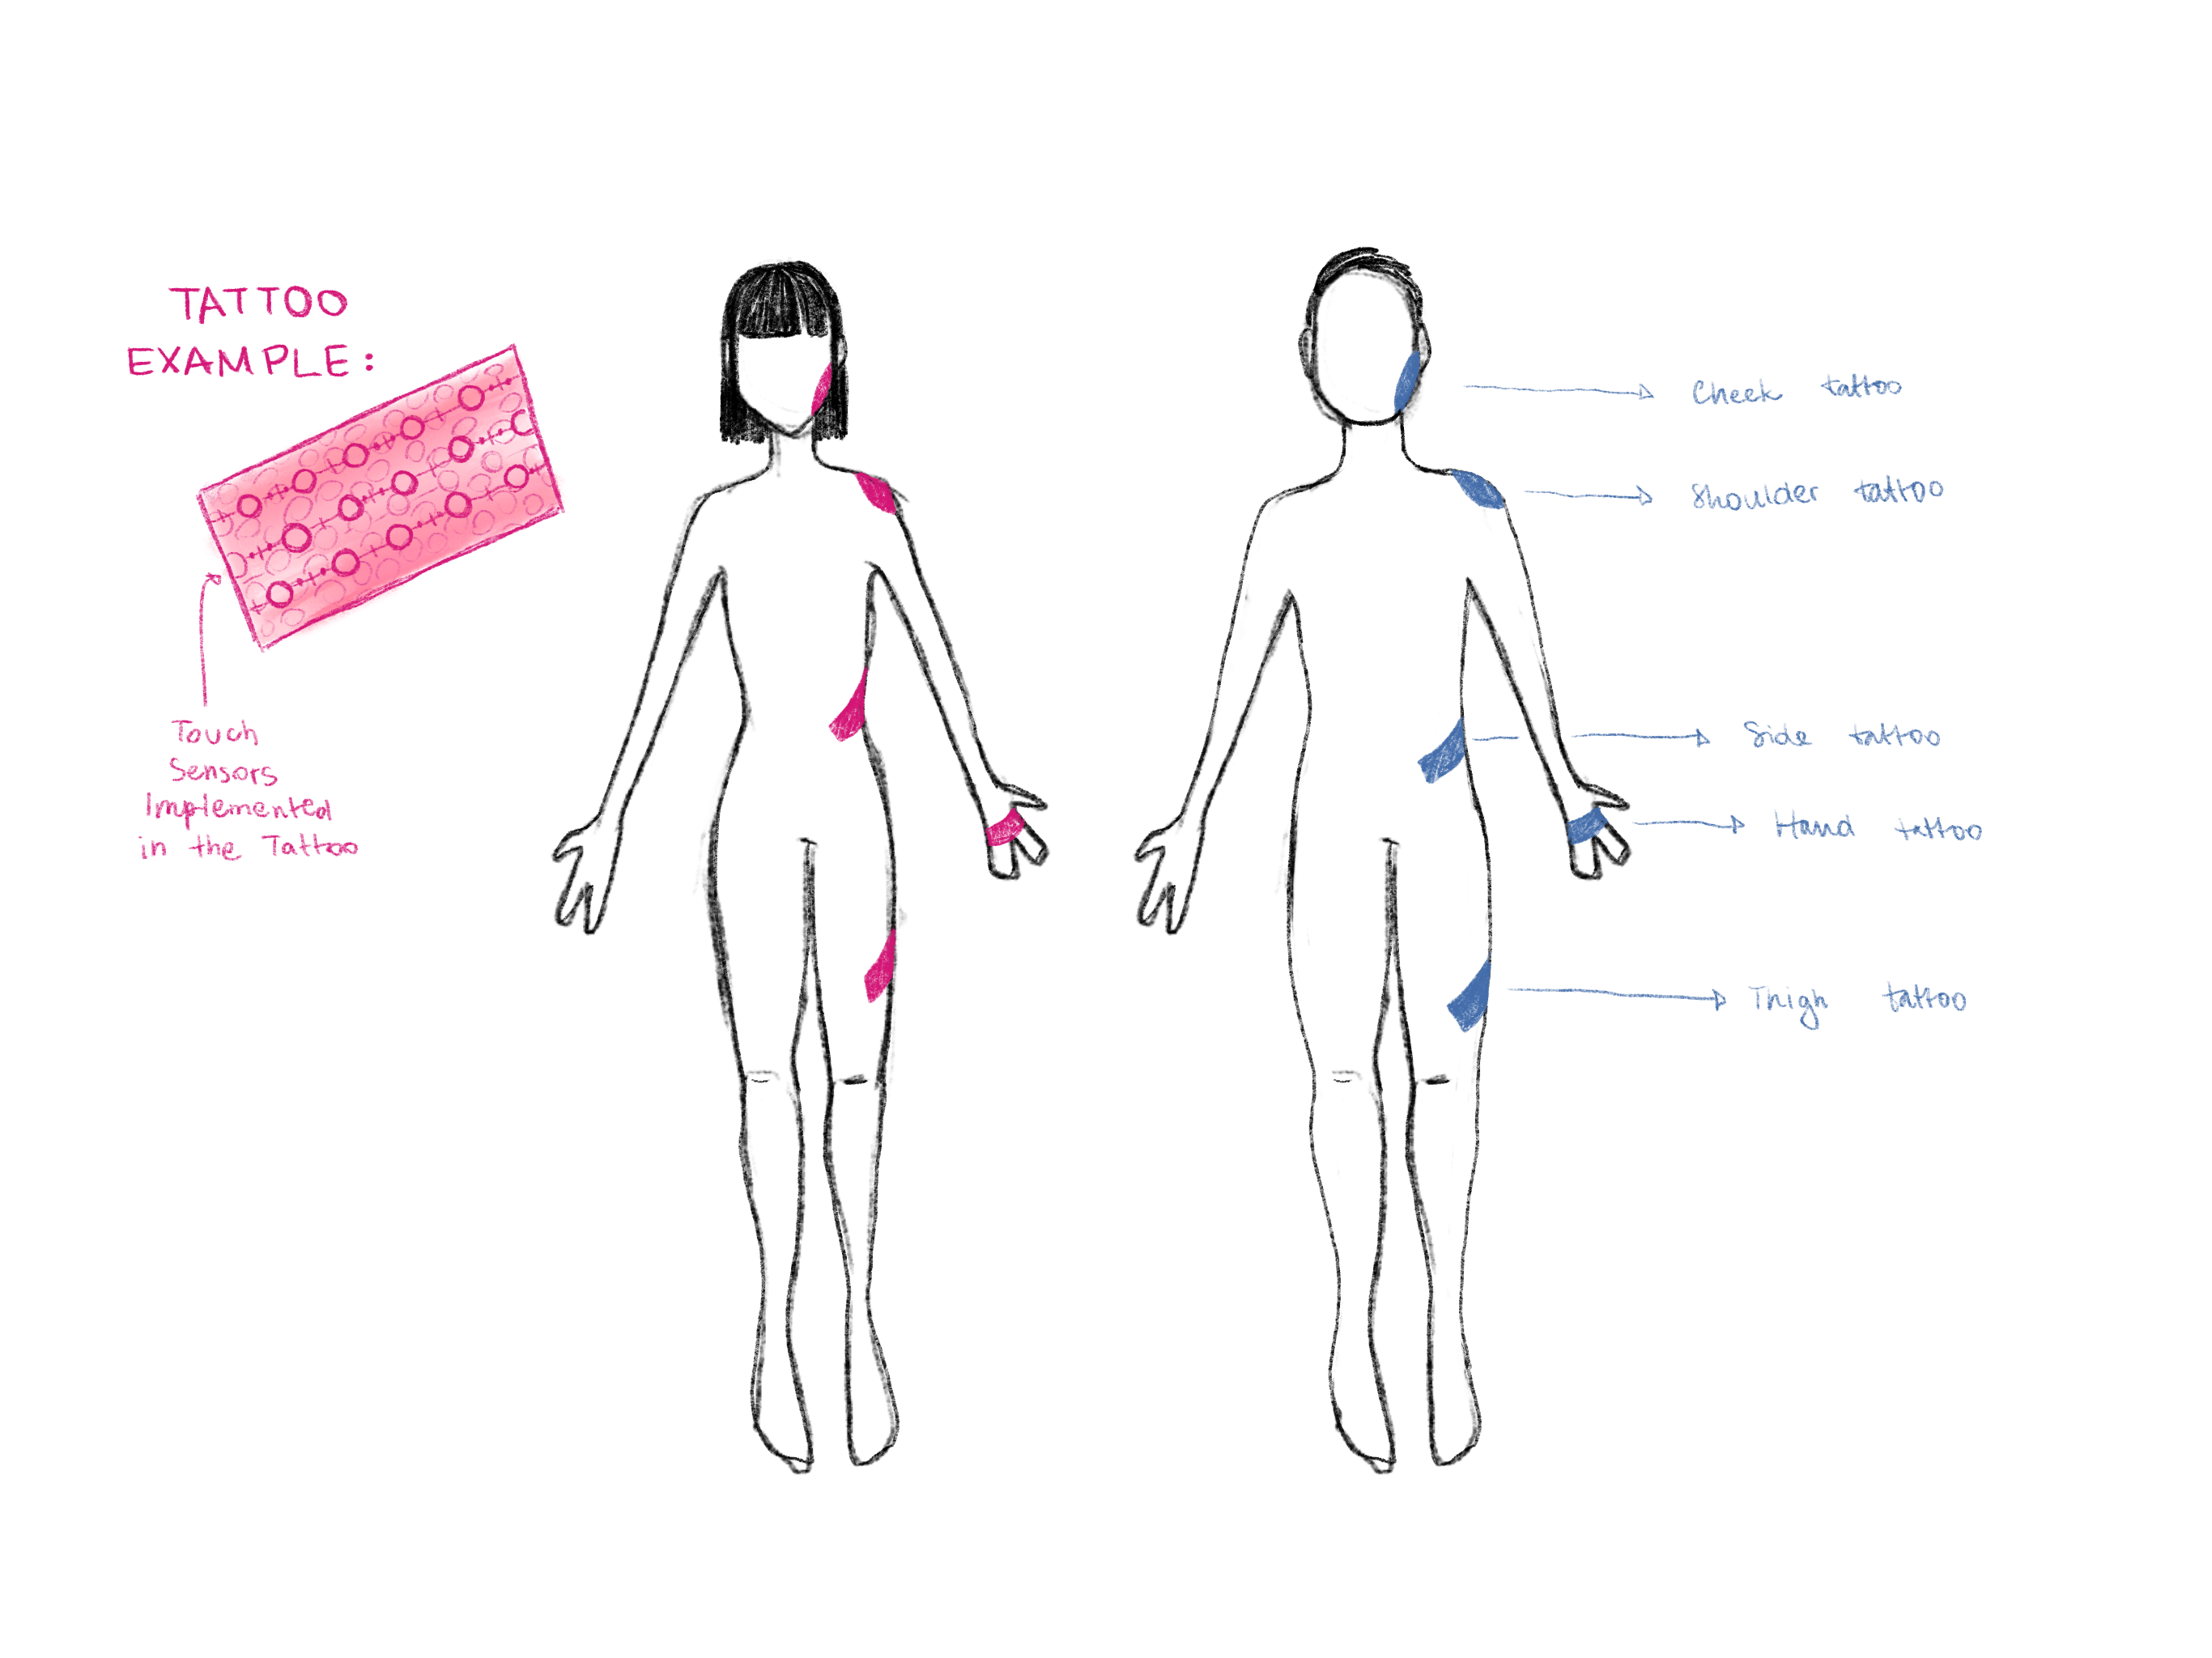 TATTOO
EXAMPLE:
Touch
Sensors
Implemented
in the Tattoo
Cheek tattoo
Shoulder tattoo
Side tattoo
Hand tattoo
Thigh tattoo